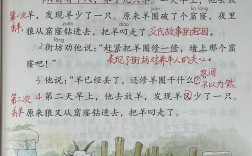 羊，发现羊少了一只。原来羊圈破了个窟窿，夜里
狼从窟窿钻进去，把羊叼走了。交代故事起因
街坊劝他说：“赶紧把羊圈修一修，堵上那个窟
窿吧！”
表现了街坊对养羊人的关心
他说：“羊已经丢了，还修羊圈干什么
不以为然
第二天早上，他去放羊，发现羊又少了一只。
第二次
丢羊
原来狼又从窟窿钻进去，把羊叼走了。